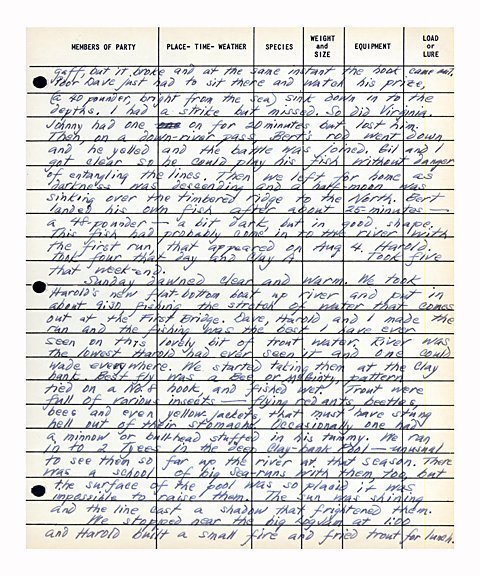 MEMBERS OF PARTY PLACE- TIME- WEATHER SPECIES WEIGHT and SIZE EQUIPMENT LOAD or LURE
gaff, but it broke and at the same instant the hook came out.
Poor Dave just had to sit there and watch his prize,
(a 40 pounder, bright from the sea) sink down in to the
depths. I had a strike but missed. So did Virginia.
Johnny had one on for 20 minutes but lost him.
Then, on a down-river pass Bert's rod went down
and he yelled and the battle was joined. Gil and I
got clear so he could play his fish without danger
of entangling the lines. Then we left for home as
darkness was descending and a half-moon was
sinking over the timbered ridge to the North. Bert
landed his own fish after about 25 minutes —
a 48-pounder — a bit dark but in good shape.
This fish had probably been in to the river with
the first run, that appeared on Aug 4. Harold
took four that day and Clay A Took five
that week-end.
Sunday dawned clear and warm. We took
Harold's new flat bottom boat up river and put in
about 9:30 fishing the stretch of water that comes
out at the First Bridge. Dave, Harold and I made the
run and the fishing was the best I have ever
seen on this lovely bit of trout water. River was
the lowest Harold had ever seen it and one could
wade everywhere. We started taking them at the Clay
bank. Best fly was a Bee or pattern
tied on a No. 8 hook and fished wet. Trout were
full of various insects — flying red ants, beetles,
bees and even yellow jackets, that must have stung
hell out of their stomachs. Occasionally one had
a minnow or bull-head stuffed in his tummy. We ran
in to 2 Tyees in the deep Clay-bank Pool — unusual
to see them so far up the river at that season. There
was a school of big sea-runs with them too but
the surface of the pool was so placid it was
impossible to raise them. The sun was shining
and the line cast a shadow that frightened them.
We stopped near the big logjam at 1:00
and Harold built a small fire and fried trout for lunch.